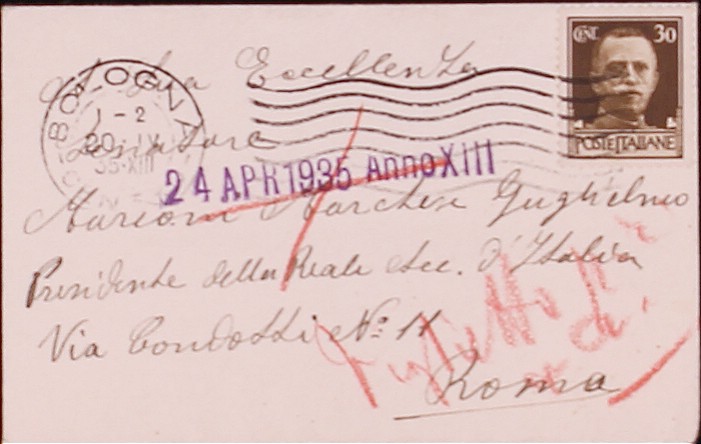 A Sua Eccellenza
CENT. 30
BOLOGNA
1-2
20 IV
35-XIII
POSTE ITALIANE
Senatore
24 APR 1935 Anno XIII
Marconi Marchese Guglielmo
Presidente della Reale Acc. d'Italia
Via Condotti No. 11
Biglietto
Roma